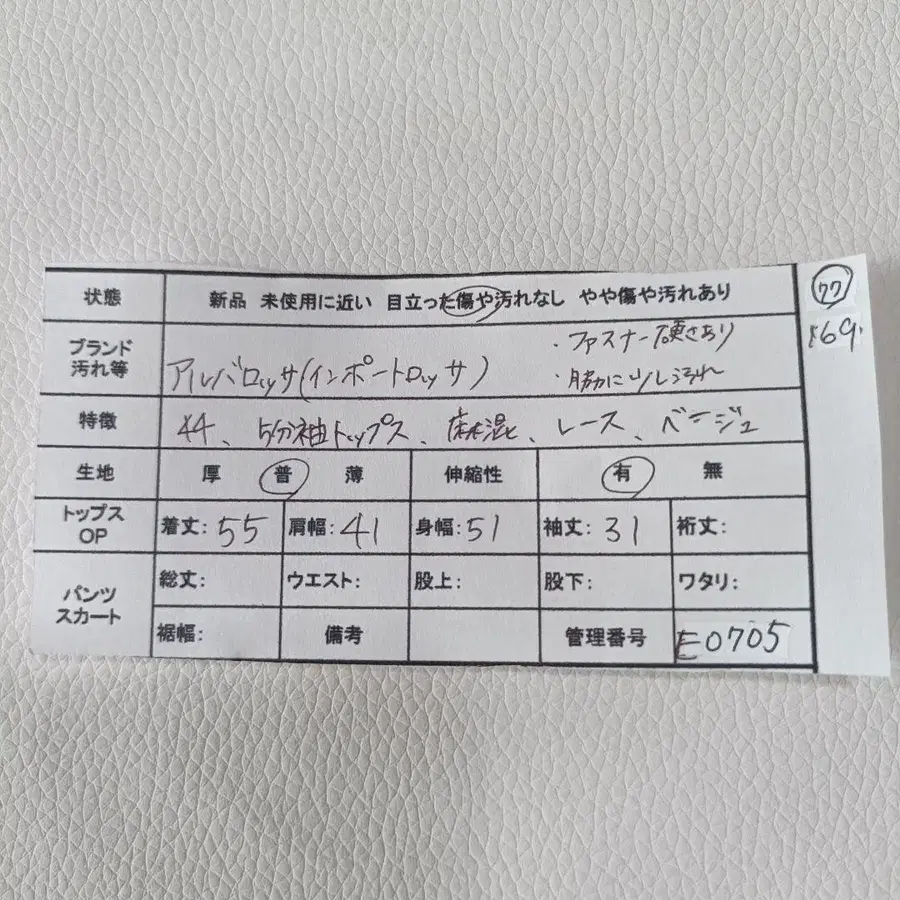 状態 新品 未使用に近い 目立った傷や汚れなし やや傷や汚れあり 77
ブランド 汚れ等 アルバロッサ(インポートロッサ) ・ファスナー硬さあり ・脇に少し汚れ
特徴 44、5分袖トップス、麻混、レース、ベージュ
生地 厚 普 薄 伸縮性 有 無
トップス OP 着丈: 55 肩幅: 41 身幅: 51 袖丈: 31 裄丈:
パンツ スカート 総丈: ウエスト: 股上: 股下: ワタリ:
裾幅: 備考 管理番号 E0705